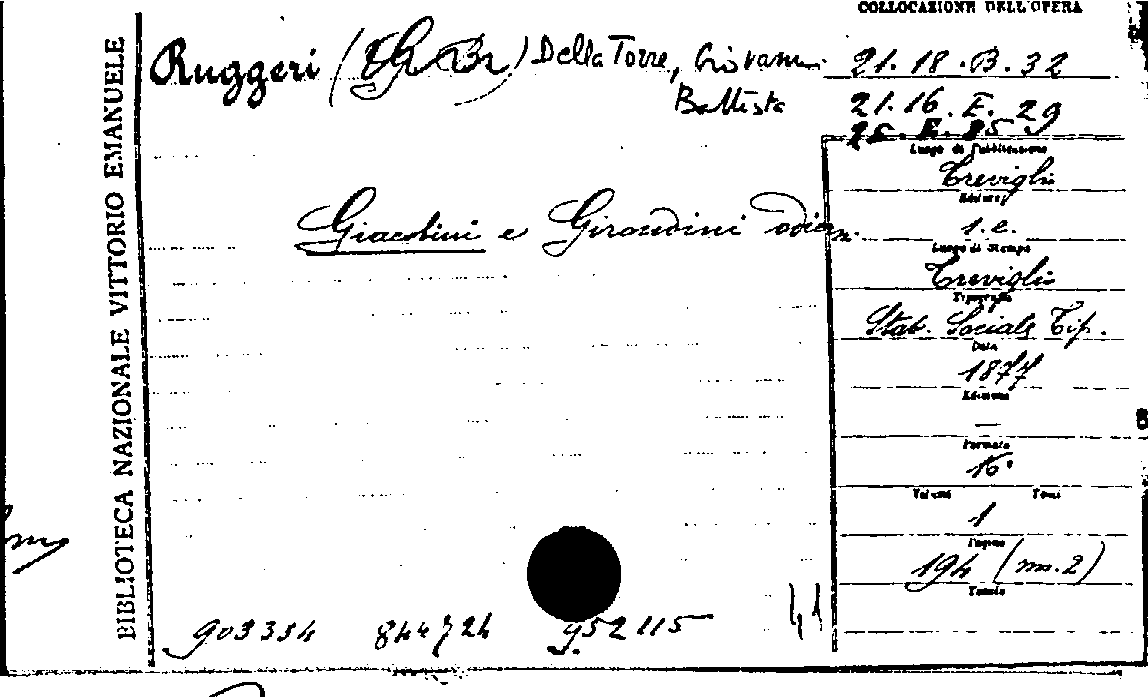 COLLOCAZIONE DELL'OPERA
BIBLIOTECA NAZIONALE VITTORIO EMANUELE
Ruggeri (G. B.) Della Torre, Giovanni
Battista
21.18.B.32
21.16.E.29
25.E.85
Luogo di Pubblicazione
Treviglio
Editore
s.e.
Giacobini e Girondini odier.
Luogo di Stampa
Treviglio
Tipografia
Stab. Sociale Tip.
Data
1877
Edizione
—
Formato
16°
Volumi Tomi
1
Pagine
194 (nn. 2)
Tavole
41
903334 844724 952115